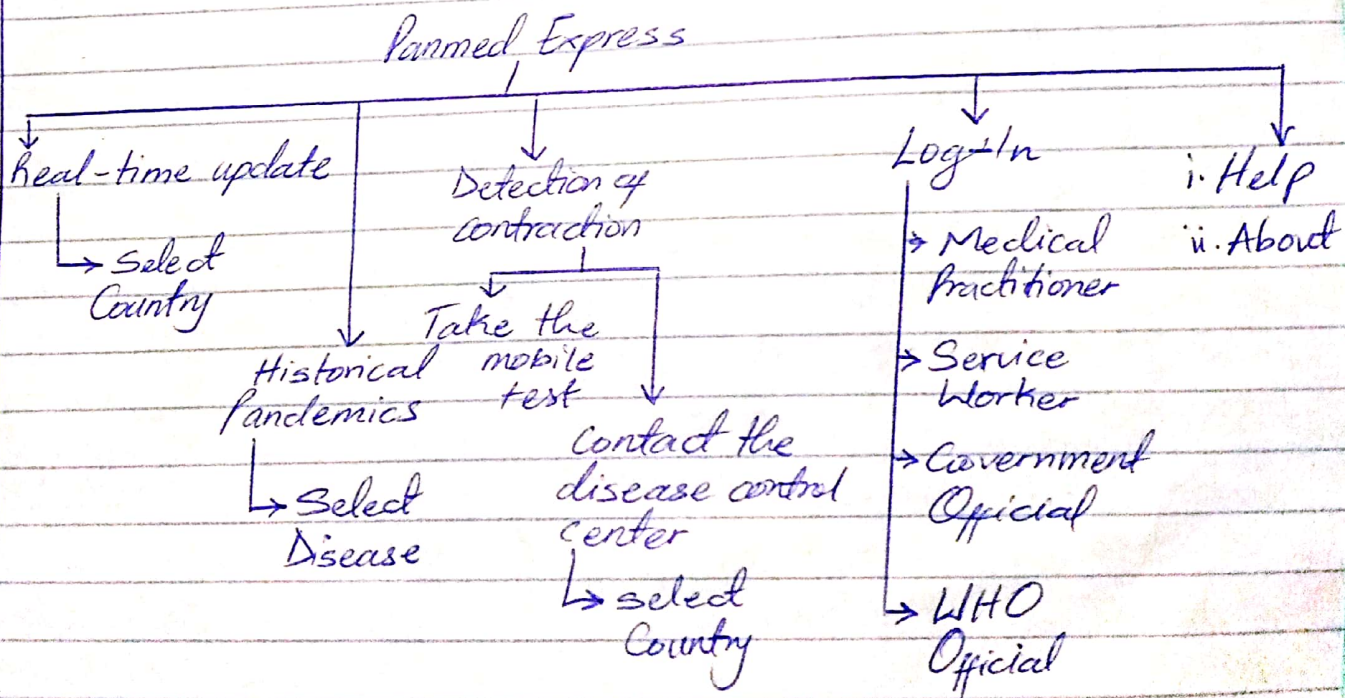 Panmed Express
Real-time update
Select
Country
Historical
Pandemics
Select
Disease
Detection of
contraction
Take the
mobile
test
Contact the
disease control
center
select
Country
Log-In
Medical
Practitioner
Service
Worker
Government
Official
WHO
Official
i. Help
ii. About